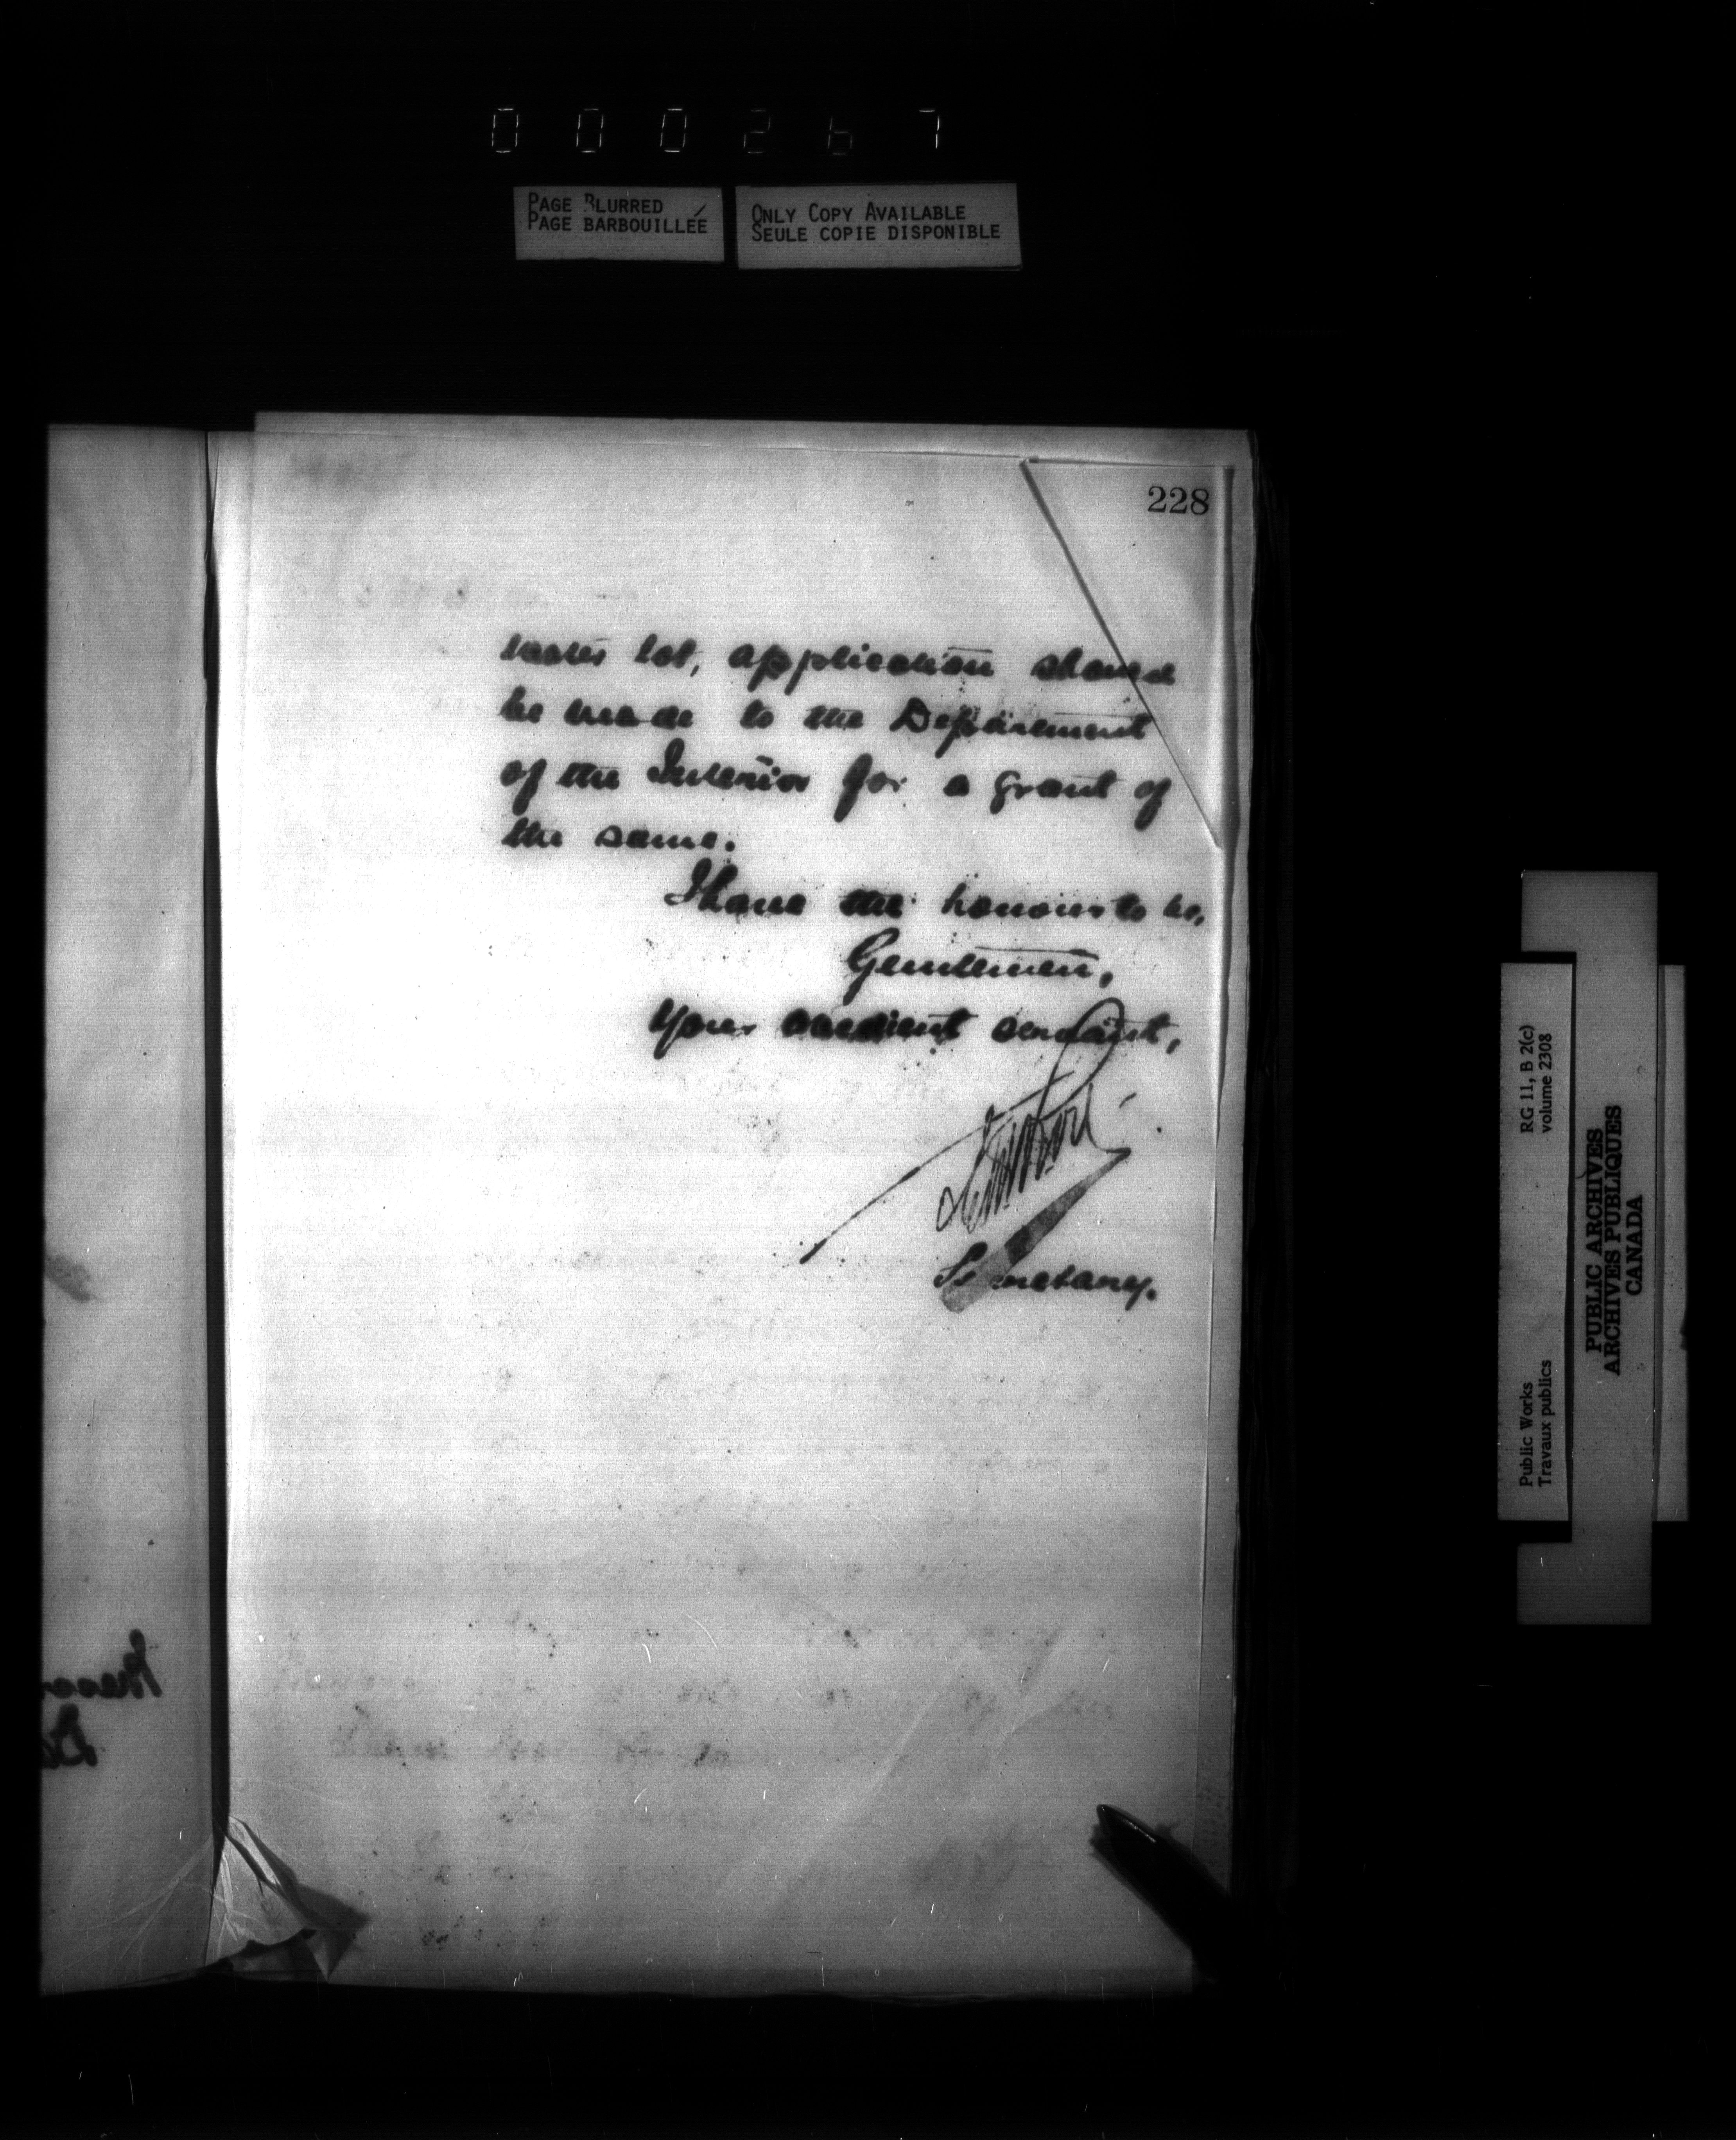 000267
PAGE BLURRED
PAGE BARBOUILLÉE
ONLY COPY AVAILABLE
SEULE COPIE DISPONIBLE
228
water lot, application should
be made to the Department
of the Interior for a grant of
the same.
I have the honour to be,
Gentlemen,
Your obedient servant,
Secretary.
RG 11, B 2(c)
volume 2308
Public Works
Travaux publics
PUBLIC ARCHIVES
ARCHIVES PUBLIQUES
CANADA